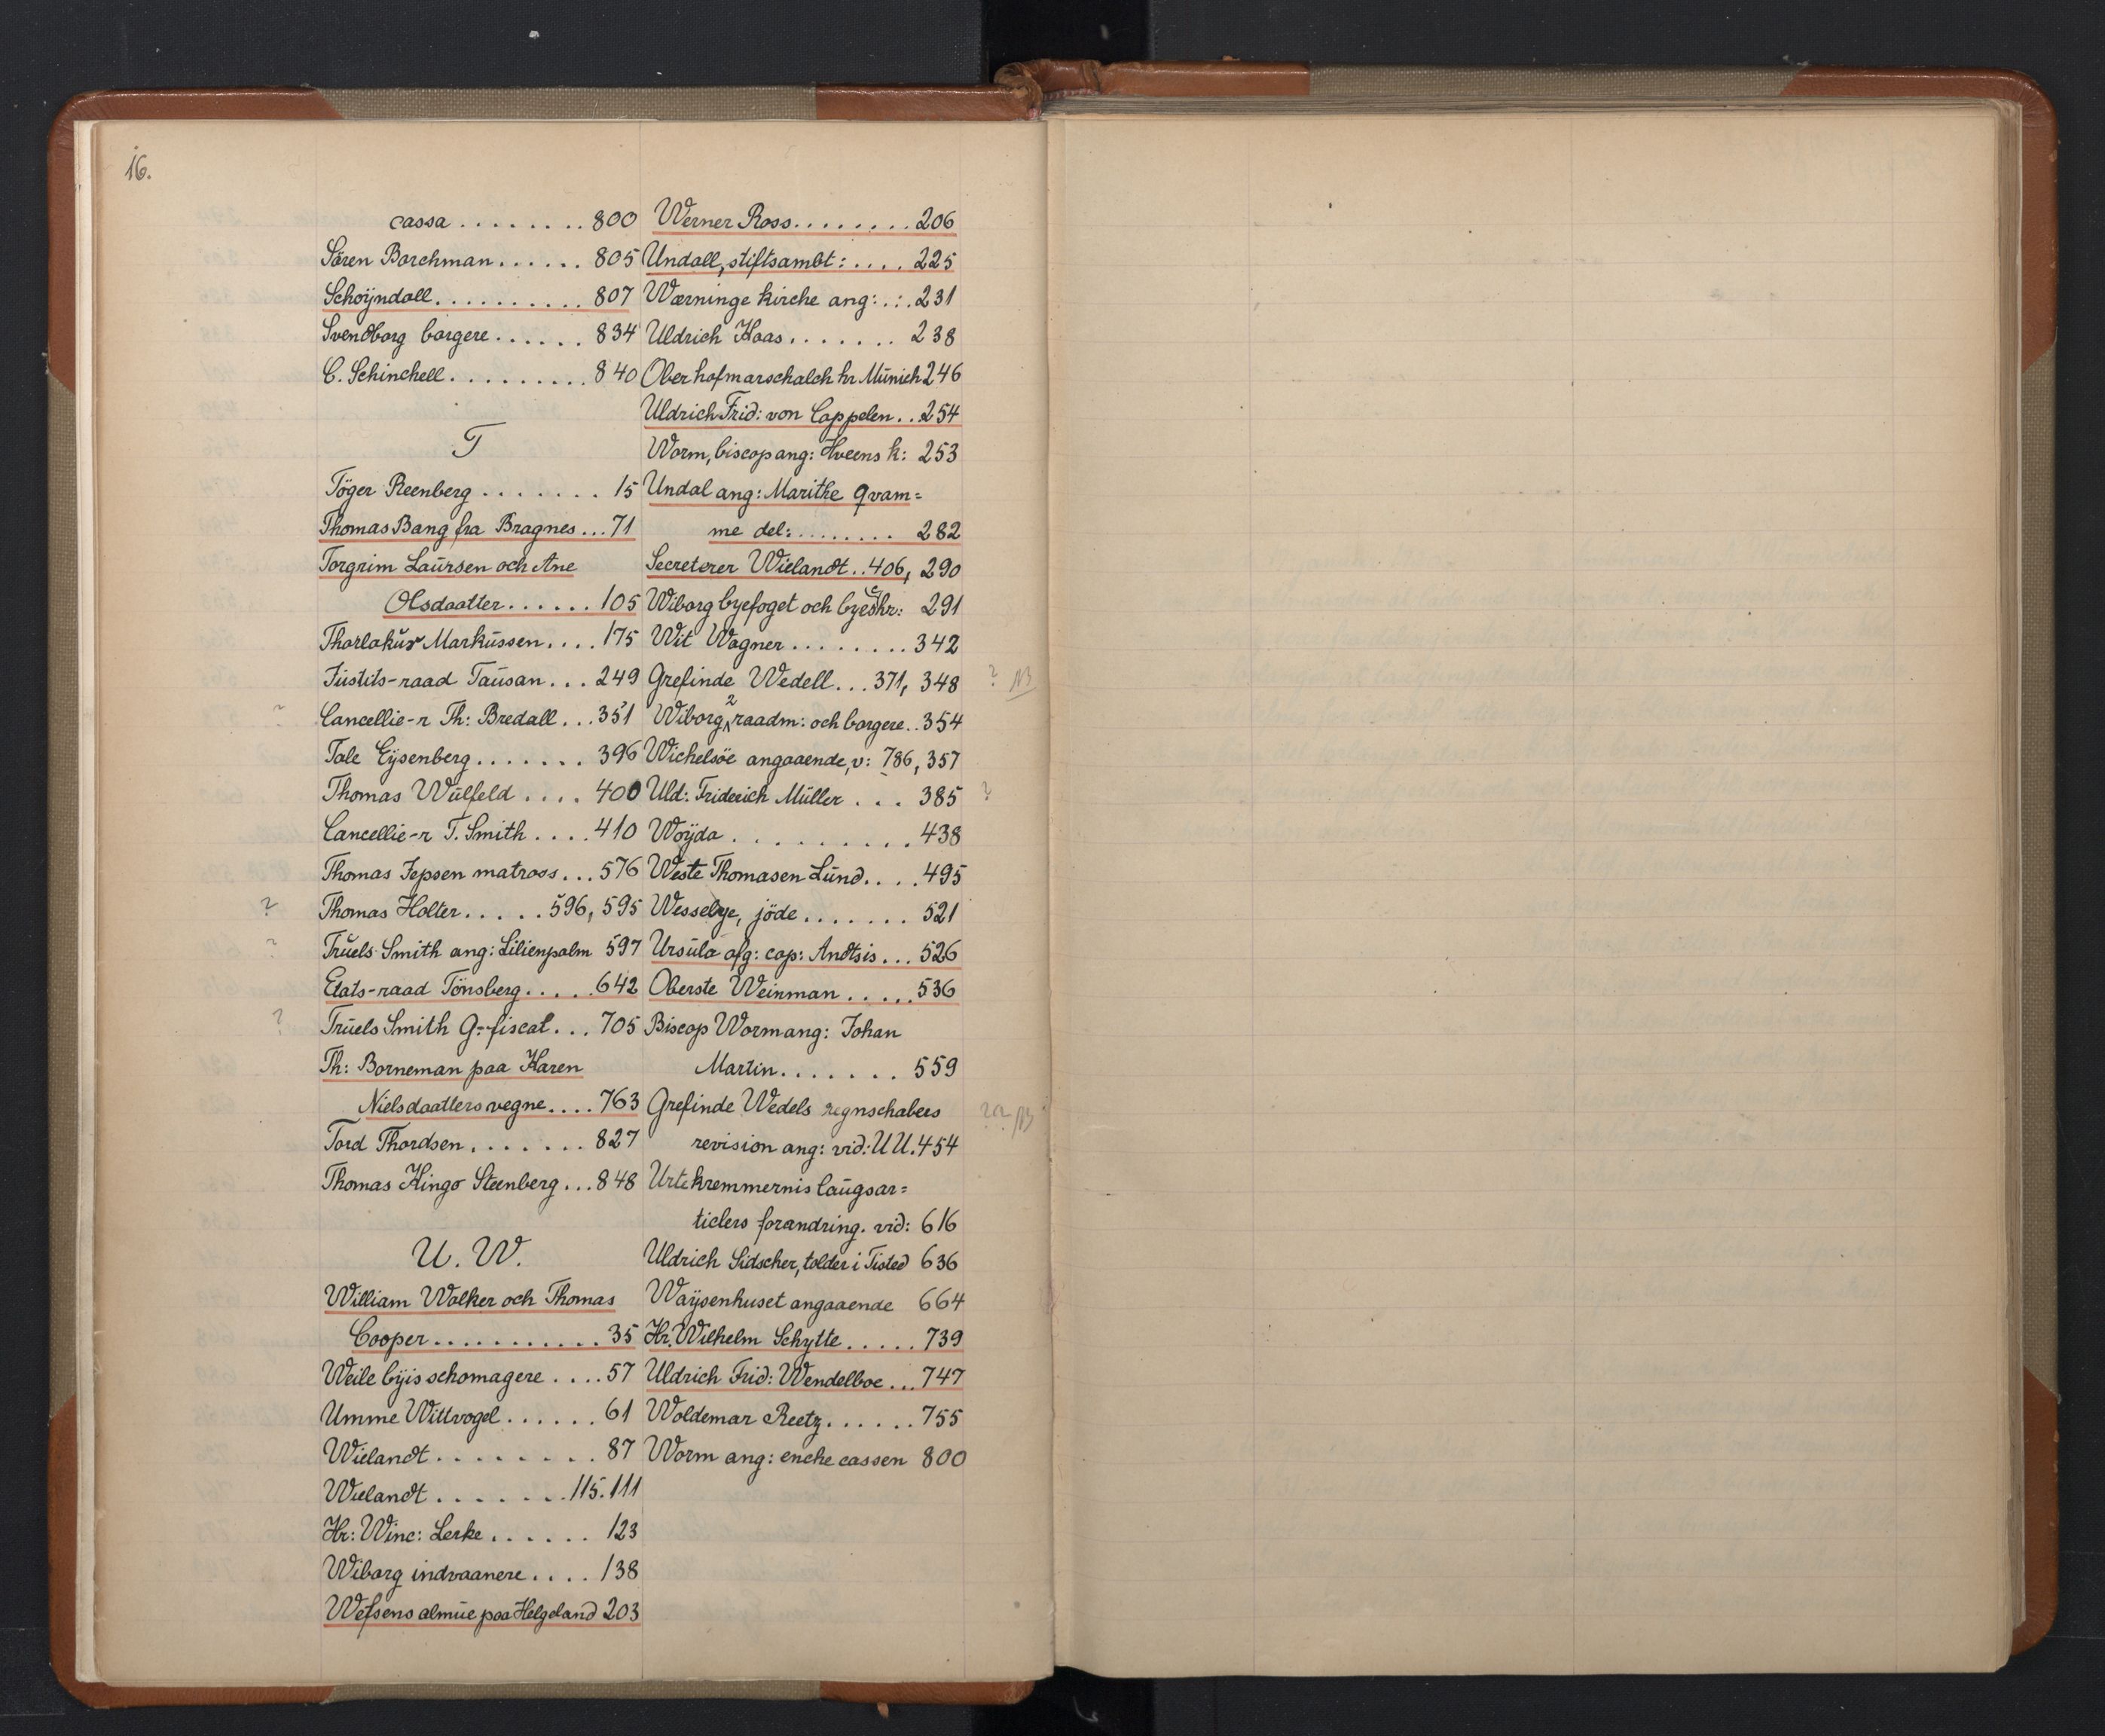 16.
cassa ........ 800
Sören Borchman ...... 805
Schöÿndall .......... 807
Svendborg borgere ...... 834
C. Schinchell ......... 840
T
Töger Reenberg ....... 15
Thomas Bang fra Bragnes ... 71
Torgrim Laursen och Ane
Olsdaatter ...... 105
Thorlakur Markussen .... 175
Justits-raad Tausan ... 249
? Cancellie-r Th: Bredall ... 351
Tale Eÿsenberg ....... 396
Thomas Wulfeld .... 400
Cancellie-r T. Smith .... 410
Thomas Jepsen matroos ... 576
? Thomas Holter ..... 596, 595
? Truels Smith ang: Lilienpalm 597
Etats-raad Tönsberg ..... 642
? Truels Smith G-fiscal ... 705
Th: Borneman paa Karen
Nielsdaatters vegne .... 763
Tord Thordsen ....... 827
Thomas Kingo Steenberg ... 848
U. W.
William Walker och Thomas
Cooper ........... 35
Weile bÿis schomagere .... 57
Umme Wittvogel ...... 61
Wielandt ........ 87
Wielandt ....... 115. 111
Hr: Winc: Lerke ...... 123
Wiborg indvaanere .... 138
Wefsens almue paa Helgeland 203
Werner Ross ........ 206
Undall, stiftsambt: .... 225
Wærninge kirche ang: .:. 231
Uldrich Kaas ....... 238
Ober hofmarschalch hr Münich 246
Uldrich Frid: von Cappelen .. 254
Worm, biscop ang: Hveens k: 253
Undal ang: Marithe Qvam=
me del: ........ 282
Secreterer Wielandt .. 406, 290
Wiborg byefoget och byeschr: 291
Wit Wagner ........ 342
Grefinde Wedell ... 371, 348 ? NB
Wiborg 2 raadm: och borgere .. 354
Wichelsöe angaaende, v: 786, 357
Uld: Friderich Müller ... 385 ?
Woÿda ......... 438
Weste Thomasen Lund .... 495
Wesselye, jöde ....... 521
Ursula afg: cap: Andtsis ... 526
Oberste Weinman ..... 536
Biscop Worm ang: Johan
Martin ....... 559
Grefinde Wedels regnschabers ?? NB
revision ang: vid: U U. 454
Urtekremmernis laugsar=
ticlers forandring. vid: 616
Uldrich Sidscher, tolder i Tisted 636
Waÿsenhuset angaaende 664
Hr. Wilhelm Schytte ..... 739
Uldrich Frid: Wendelboe ... 747
Woldemar Reetz ...... 755
Worm ang: encke cassen 800